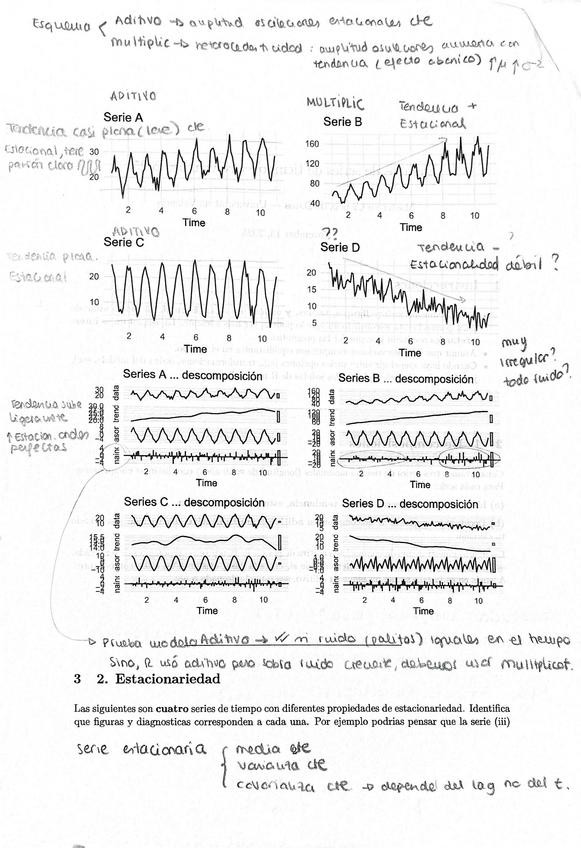 Esquema { Aditivo → amplitud oscilaciones estacionales cte
multiplic → heterocedasticidad: amplitud oscilaciones aumenta con
tendencia (efecto abanico) ↑μ ↑σ²
ADITIVO
Serie A
Tendencia casi plana (leve) cte
Estacional, tiene
patrón claro
30
20
2 4 6 8 10
Time
MULTIPLIC
Tendencia +
Estacional
Serie B
160
120
80
40
2 4 6 8 10
Time
ADITIVO
Serie C
Tendencia plana.
Estacional
20
10
2 4 6 8 10
Time
??
Serie D
Tendencia - ?
Estacionalidad débil?
20
15
10
5
2 4 6 8 10
Time
muy
irregular?
todo ruido?
Series A ... descomposición
Tendencia sube
ligeramente
↑ Estacion. ondas
perfectas
data
trend
2 4 6 8 10
Time
Series B ... descomposición
data
trend
2 4 6 8 10
Time
Series C ... descomposición
data
trend
2 4 6 8 10
Time
Series D ... descomposición
data
trend
2 4 6 8 10
Time
Prueba modelo Aditivo → ✓✓ si ruido (palitos) iguales en el tiempo
Sino, R usó aditivo pero sobra ruido creciente, debemos usar multiplicat.
3 2. Estacionariedad
Las siguientes son cuatro series de tiempo con diferentes propiedades de estacionariedad. Identifica
que figuras y diagnosticas corresponden a cada una. Por ejemplo podrias pensar que la serie (iii)
serie estacionaria { media cte
varianza cte
covarianza cte → depende del lag no del t.